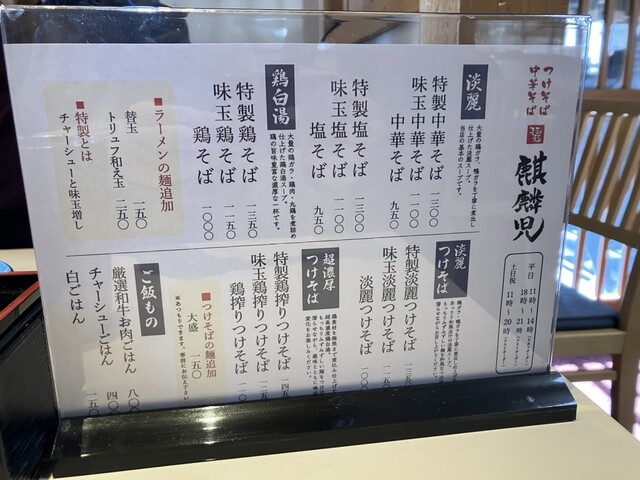 つけそば
中華そば
麒麟児
平日 11時〜14時
18時〜21時
土日祝 11時〜20時
淡麗
大量の鶏ガラ、鴨ガラを丁寧に煮出し
仕上げた淡麗スープ。
当店の基本のスープです。
特製中華そば 一三〇〇
味玉中華そば 一一〇〇
中華そば 九五〇
特製塩そば 一三〇〇
味玉塩そば 一一〇〇
塩そば 九五〇
鶏白湯
大量の鶏ガラ、鶏肉・丸鶏を煮詰め
仕上げた鶏白湯スープ。
鶏の旨味重富な濃厚な一杯です。
特製鶏そば 一三五〇
味玉鶏そば 一一五〇
鶏そば 一〇〇〇
■ラーメンの麺追加
替玉 一五〇
トリュフ和え玉 二五〇
■特製とは
チャーシューと味玉増し
淡麗
つけそば
特製淡麗つけそば 一三五〇
味玉淡麗つけそば
淡麗つけそば 一〇〇〇
超濃厚
つけそば
特製鶏搾りつけそば 一四五
味玉鶏搾りつけそば 一二五
鶏搾りつけそば 一一
■つけそばの麺追加
大盛 一五〇
※あつもりできます。事前にお伝え下さい。
ご飯もの
厳選和牛お肉ごはん 八〇
チャーシューごはん 四〇
白ごはん 一五〇